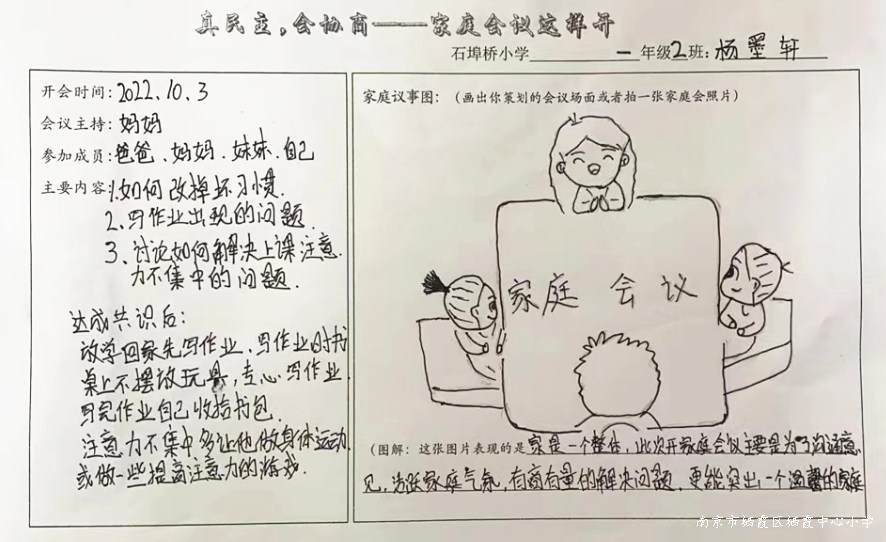 真民主，会协商——家庭会议这样开
石埠桥小学 一 年级 2 班：杨墨轩
开会时间：2022.10.3
会议主持：妈妈
参加成员：爸爸、妈妈、妹妹、自己
主要内容：1.如何改掉坏习惯.
2.写作业出现的问题.
3、讨论如何解决上课注意
力不集中的问题.
达成共识后：
放学回家先写作业、写作业时书
桌上不摆放玩具，专心写作业.
写完作业自己收拾书包.
注意力不集中多让他做身体运动
或做一些提高注意力的游戏.
家庭议事图：（画出你策划的会议场面或者拍一张家庭会照片）
家庭 会议
（图解：这张图片表现的是家是一个整体，此次开家庭会议主要是为了沟通意
见，活跃家庭气氛，有商有量的解决问题，更能突出一个温馨的家庭
南京市栖霞区栖霞中心小学